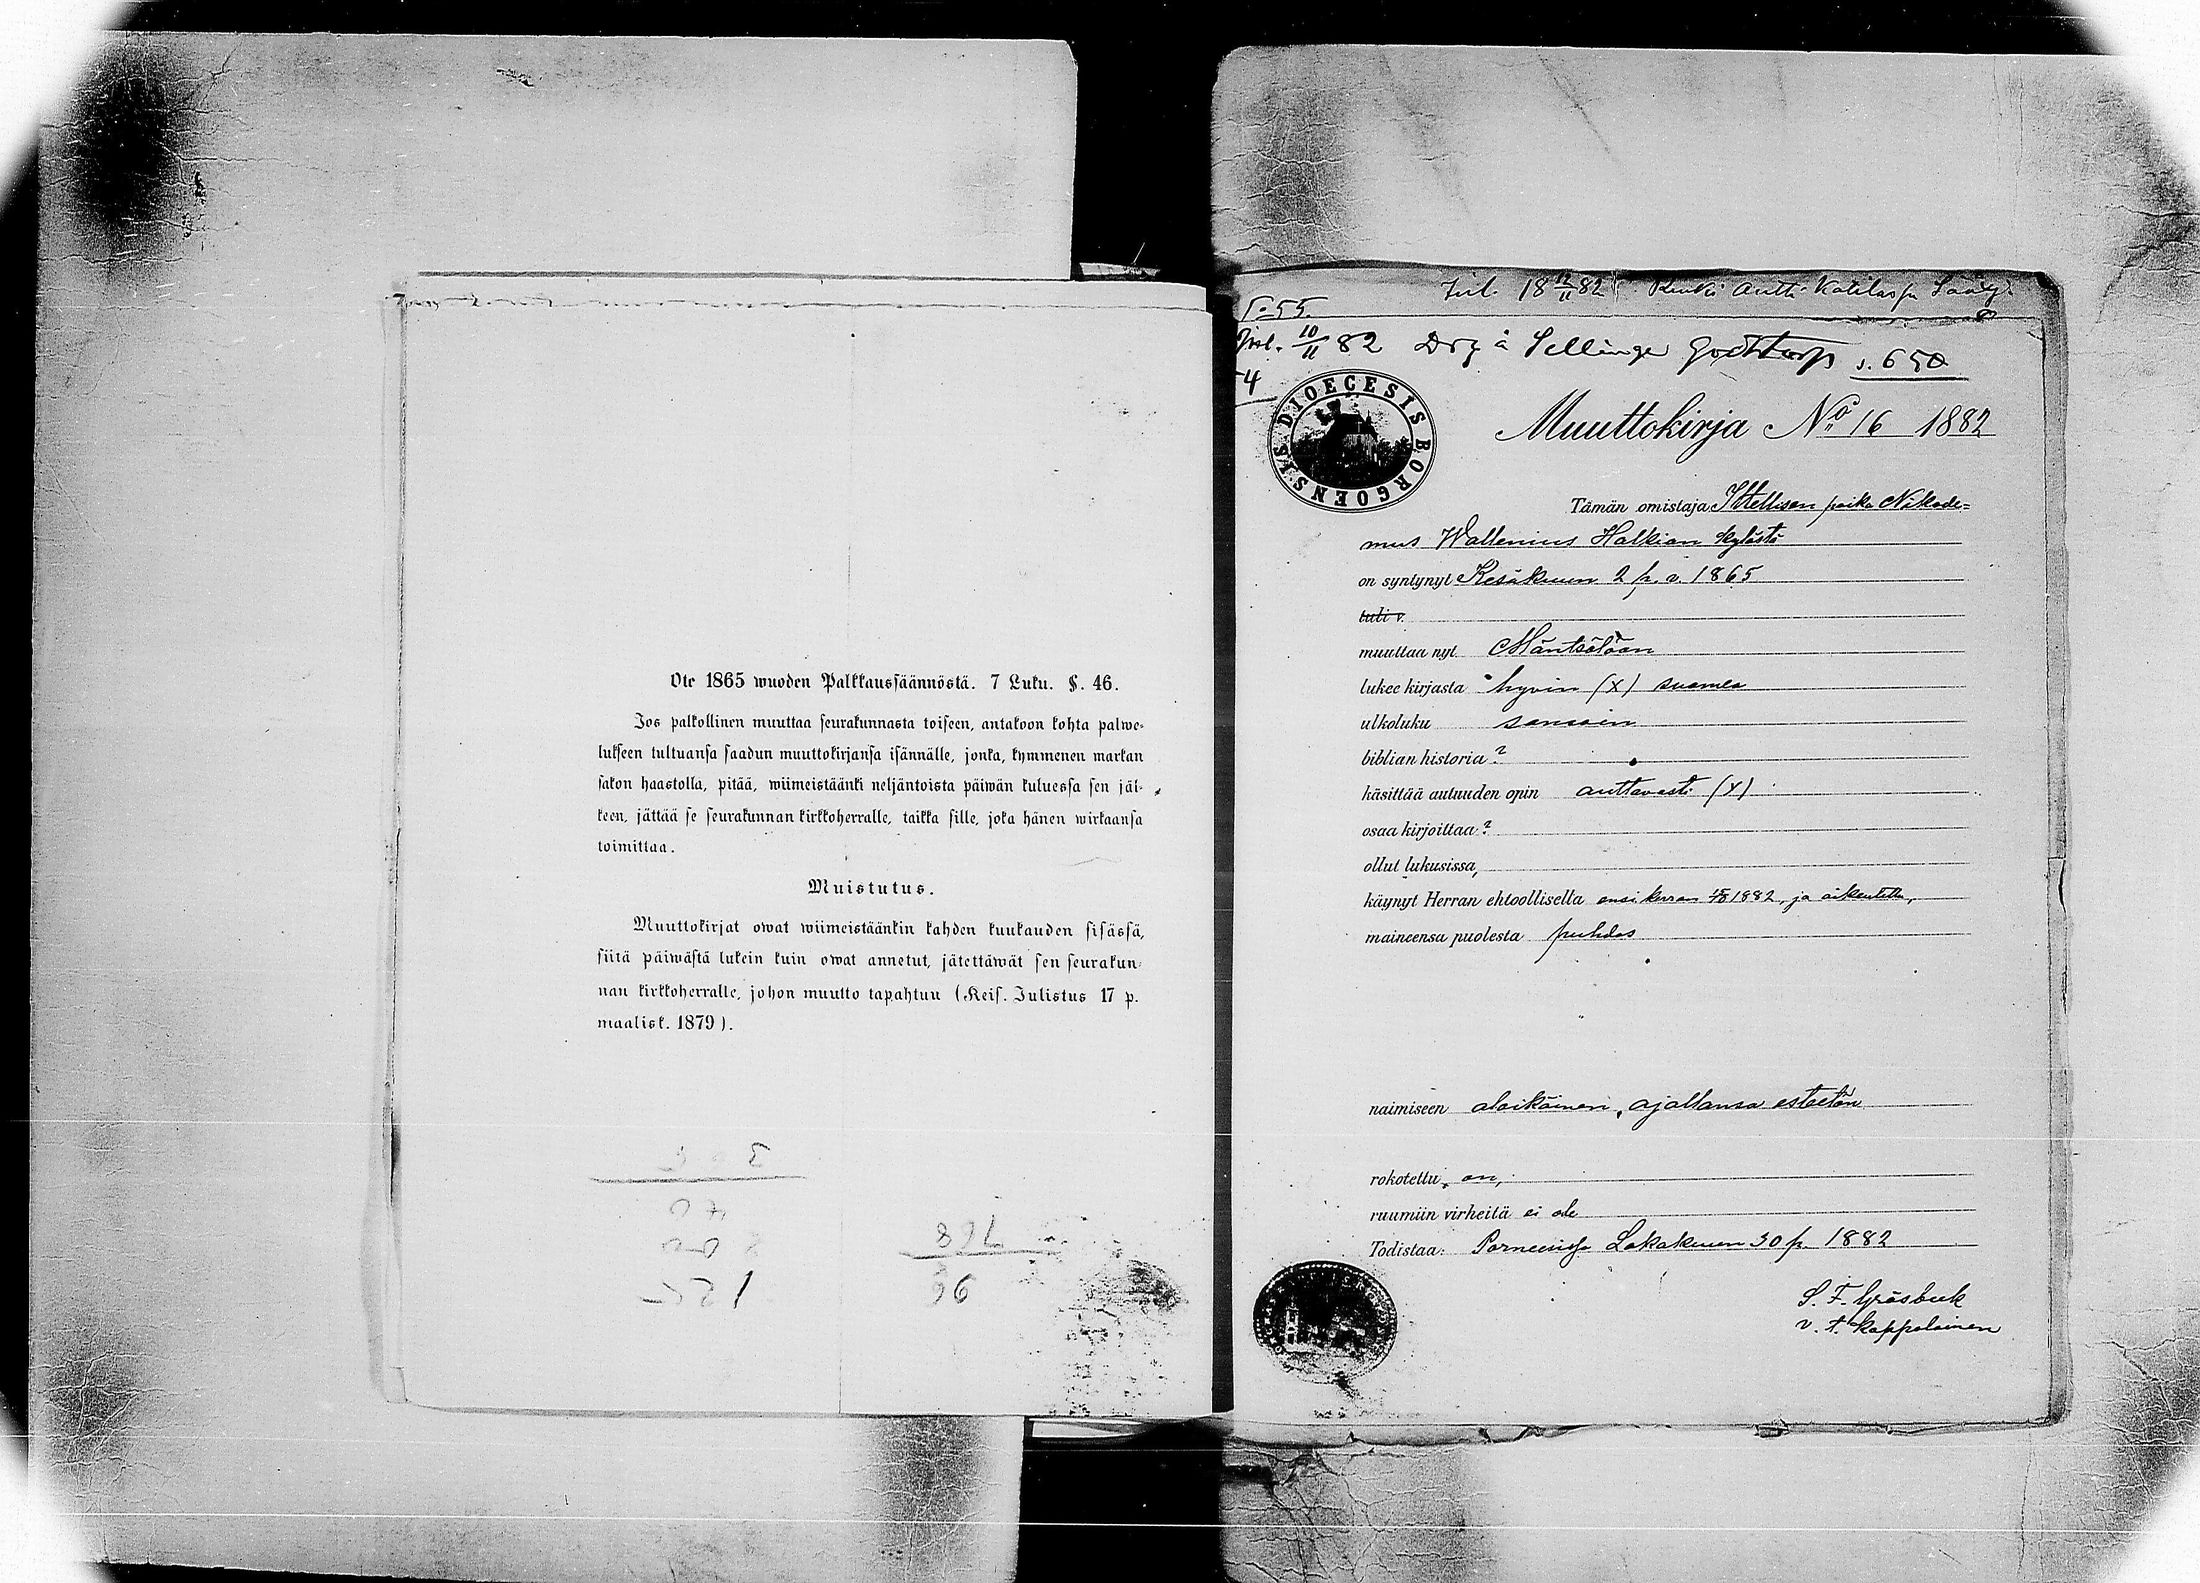 Ote 1865 wuoden Palkkaussäännöstä. 7 Luku. §. 46.
Jos palkollinen muuttaa seurakunnasta toiseen, antakoon kohta palwe-
lukseen tultuansa saadun muuttokirjansa isännälle, jonka, kymmenen markan
sakon haastolla, pitää, wiimeistäänki neljäntoista päiwän kuluessa sen jäl-
keen, jättää se seurakunnan kirkkoherralle, taikka sille, joka hänen wirkaansa
toimittaa.
Muistutus.
Muuttokirjat owat wiimeistäänkin kahden kuukauden sisässä,
siitä päiwästä lukein kuin owat annetut, jätettäwät sen seurakun-
nan kirkkoherralle, johon muutto tapahtuu (Keis. Julistus 17 p.
maalisk. 1879).
Inl. 18 12/11 82 Renki Antti
s. 55.
Inl. 10/11 82 Drg å Sellinge s. 650
54
DIOECESIS BORGOENSIS
Muuttokirja No 16 1882
Tämän omistaja Itsellisen poika Nikode=
mus Wallenius Halkian kylästä
on syntynyt Kesäkuun 2 p. v. 1865
tuli v.
muuttaa nyt Mäntsälään
lukee kirjasta hyvin (x) suomea
ulkoluku samoin
biblian historia?
käsittää autuuden opin auttavasti (x)
osaa kirjoittaa?
ollut lukusissa,
käynyt Herran ehtoollisella ensi kerran 1882, ja oikeutettu,
maineensa puolesta puhdas
naimiseen alaikäinen, ajallansa esteetön
rokotettu, on,
ruumiin virheitä ei ole
Todistaa: Pornaisissa Lokakuun 30 p. 1882
S. F. Gräsbeck
v. t. kappalainen